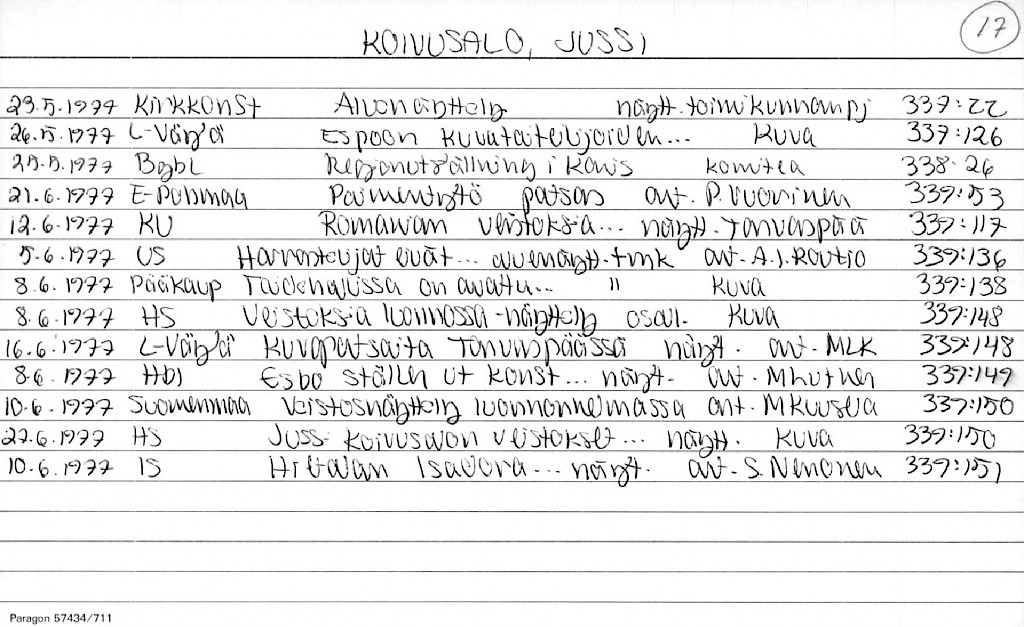 17
KOIVUSALO, JUSSI
23.5.1977 Kirkkonst Aluenäyttely näytt. toimikunnan pj 337:22
26.5.1977 L-Väylä Espoon kuvataiteilijoiden... Kuva 337:126
25.5.1977 Bgbl Regionutställning i Karis komitea 338:26
21.6.1977 E-Pohjmaa Paimentyttö patsas art. P. Vuorinen 339:53
12.6.1977 KU Romanian veistoksia... näytt. Tanvaspää 339:117
5.6.1977 US Harrastelijat eivät... aluenäytt. tmk art. A.I. Routio 339:136
8.6.1977 Pääkaup Taidehallissa on avattu... " Kuva 339:138
8.6.1977 HS Veistoksia luonnossa -näyttely osal. Kuva 339:148
16.6.1977 L-Väylä Kuvapatsaita Tanvaspäässä näytt. art. MLK 339:148
8.6.1977 Hbl Esbo ställer ut konst... näytt. art. M Luther 339:149
10.6.1977 Suomenmaa Veistosnäyttely luonnonhelmassa art. M Kuusela 339:150
27.6.1977 HS Jussi Koivusalon veistokset... näytt. Kuva 339:150
10.6.1977 IS Hiltalan Isadora... näytt. art. S. Nenonen 339:151
Paragon 57434/711